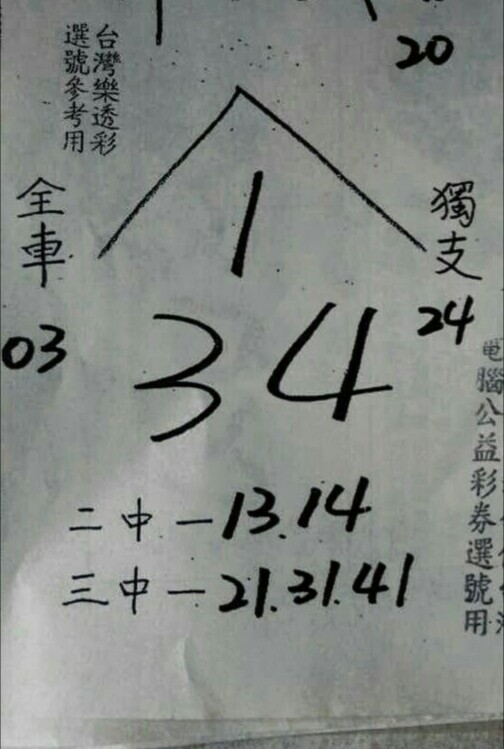 台灣樂透彩
選號參考用
20
全車
03
獨支
24
1
34
二中一13.14
三中一21.31.41
電腦公益彩券選號用